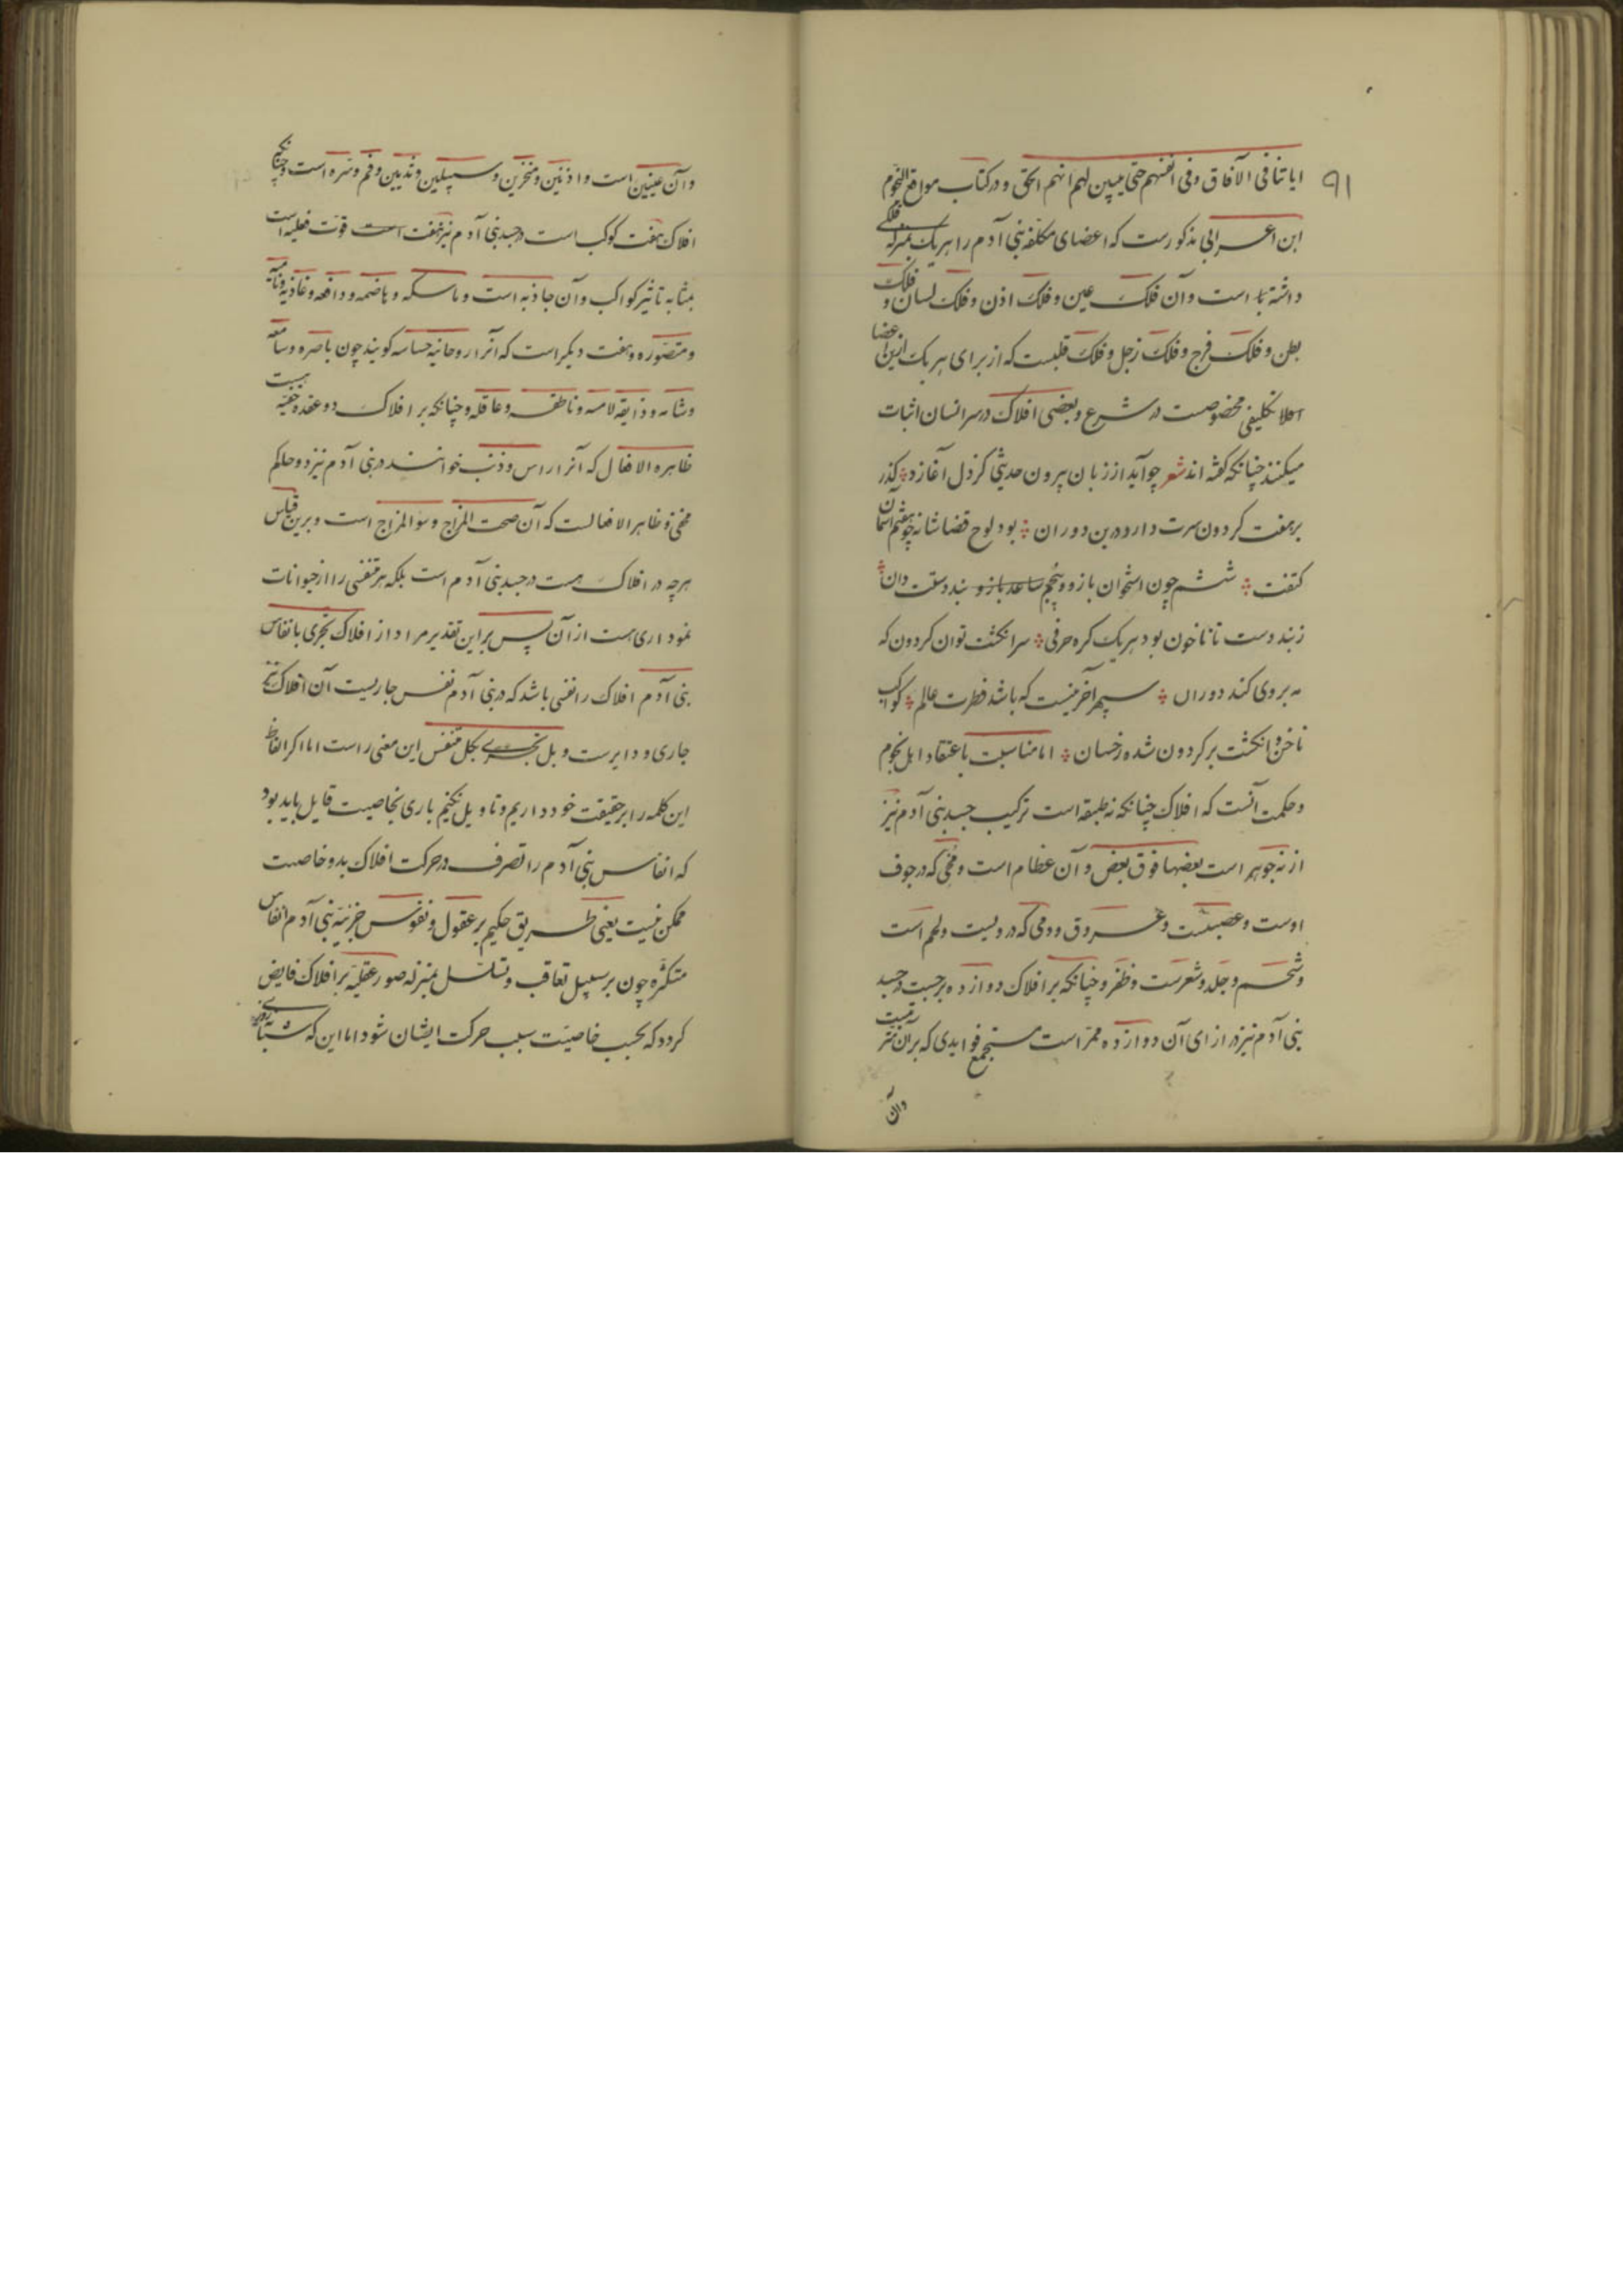 ۹۱
ایاتنا فی الآفاق وفی انفسهم حتی یتبین لهم انهم الحق و در کتاب مواقع النجوم
ابن اعرابی مذکورست که اعضای مکلفه بنی آدم را هر یک بمنزله فلکی
داشته‌اند است وآن فلک عین وفلک اذن وفلک لسان و فلک
بطن و فلک فرج و فلک رجل و فلک قلبست که از برای هر یک ازین اعضا
اصلا تکلیفی مخصوصست در شرع و بعضی افلاک در سر انسان اثبات
میکنند چنانکه گفته اند شعر چو آید از زبان بیرون حدیثی کز دل آغازد کذر
بر هفت کردون سرت دارد درین دوران بود لوح قضا شانه چو هفتم آسمان آن
کتفت ششم چون استخوان بازو و پنجم ساعد بازو بند دستت دان
ز بند دست تا ناخون بود هر یک کره حرفی سر انکشت توان کردون که
مه بروی کند دوران سپهر آخرینست که باشد فطرت عالم کواکب
ناخن و انکشت بر کردون شده رخسان اما مناسبت باعتقاد اهل نجوم
وحکمت آنست که افلاک چنانکه نه طبقه است ترکیب جسد بنی آدم نیز
از نه جوهر است بعضها فوق بعض و آن عظام است و مخی که در جوف
اوست و عصبست و عروق و دمی که درویست و لحم است
وشحم و جلد و شعرست و ظفر و چنانکه بر افلاک دوازده برجست در جسد
بنی آدم نیز در ازای آن دوازده ممر است مستجمع فوایدی که بر آن مترتبست
وآن
وآن عینین است و اذنین و منخرین و سبیلین و ثدیین و فم و سره است و چنانکه
افلاک هفت کوکب است در جسد بنی آدم نیز هفت است قوت فعلیه است
بمثابه تاثیر کواکب وآن جاذبه است و ماسکه و هاضمه و دافعه و غاذیه و نامیه
ومصوره و هفت دیکر است که آنرا روحانیه حساسه کویند چون باصره و سامعه
وشامه و ذایقه و لامسه و ناطقه و عاقله و چنانکه بر افلاک دو عقده خفیه هست
ظاهره الافعال که آنرا راس و ذنب خوانند در بنی آدم نیز دو حکم
مخفی و ظاهر الافعالست که آن صحت المزاج و سوء المزاج است و برین قیاس
هر چه در افلاک هست در جسد بنی آدم است بلکه هر متنفسی را از حیوانات
نموداری هست از آن پس بر این تقدیر مراد از افلاک تجری بانفاس
بنی آدم افلاک را نفسی باشد که در بنی آدم نفس جاریست آن افلاک نیز
جاری و دایرست و بل تجری بکل متنفس این معنی راست اما اکر الفاظ
این کلمه را بر حقیقت خود داریم و تاویل نکنیم باری بخاصیت قایل باید بود
که انفاس بنی آدم را تصرف در حرکت افلاک بدو خاصیت
ممکن نیست یعنی طریق حکیم بر عقول و نفوس جزئیه بنی آدم انفاس
متکثره چون بر سبیل تعاقب و تسلسل بمنزله صور عقلیه بر افلاک فایض
کردد که بحسب خاصیت سبب حرکت ایشان شود اما این که شبانروزی